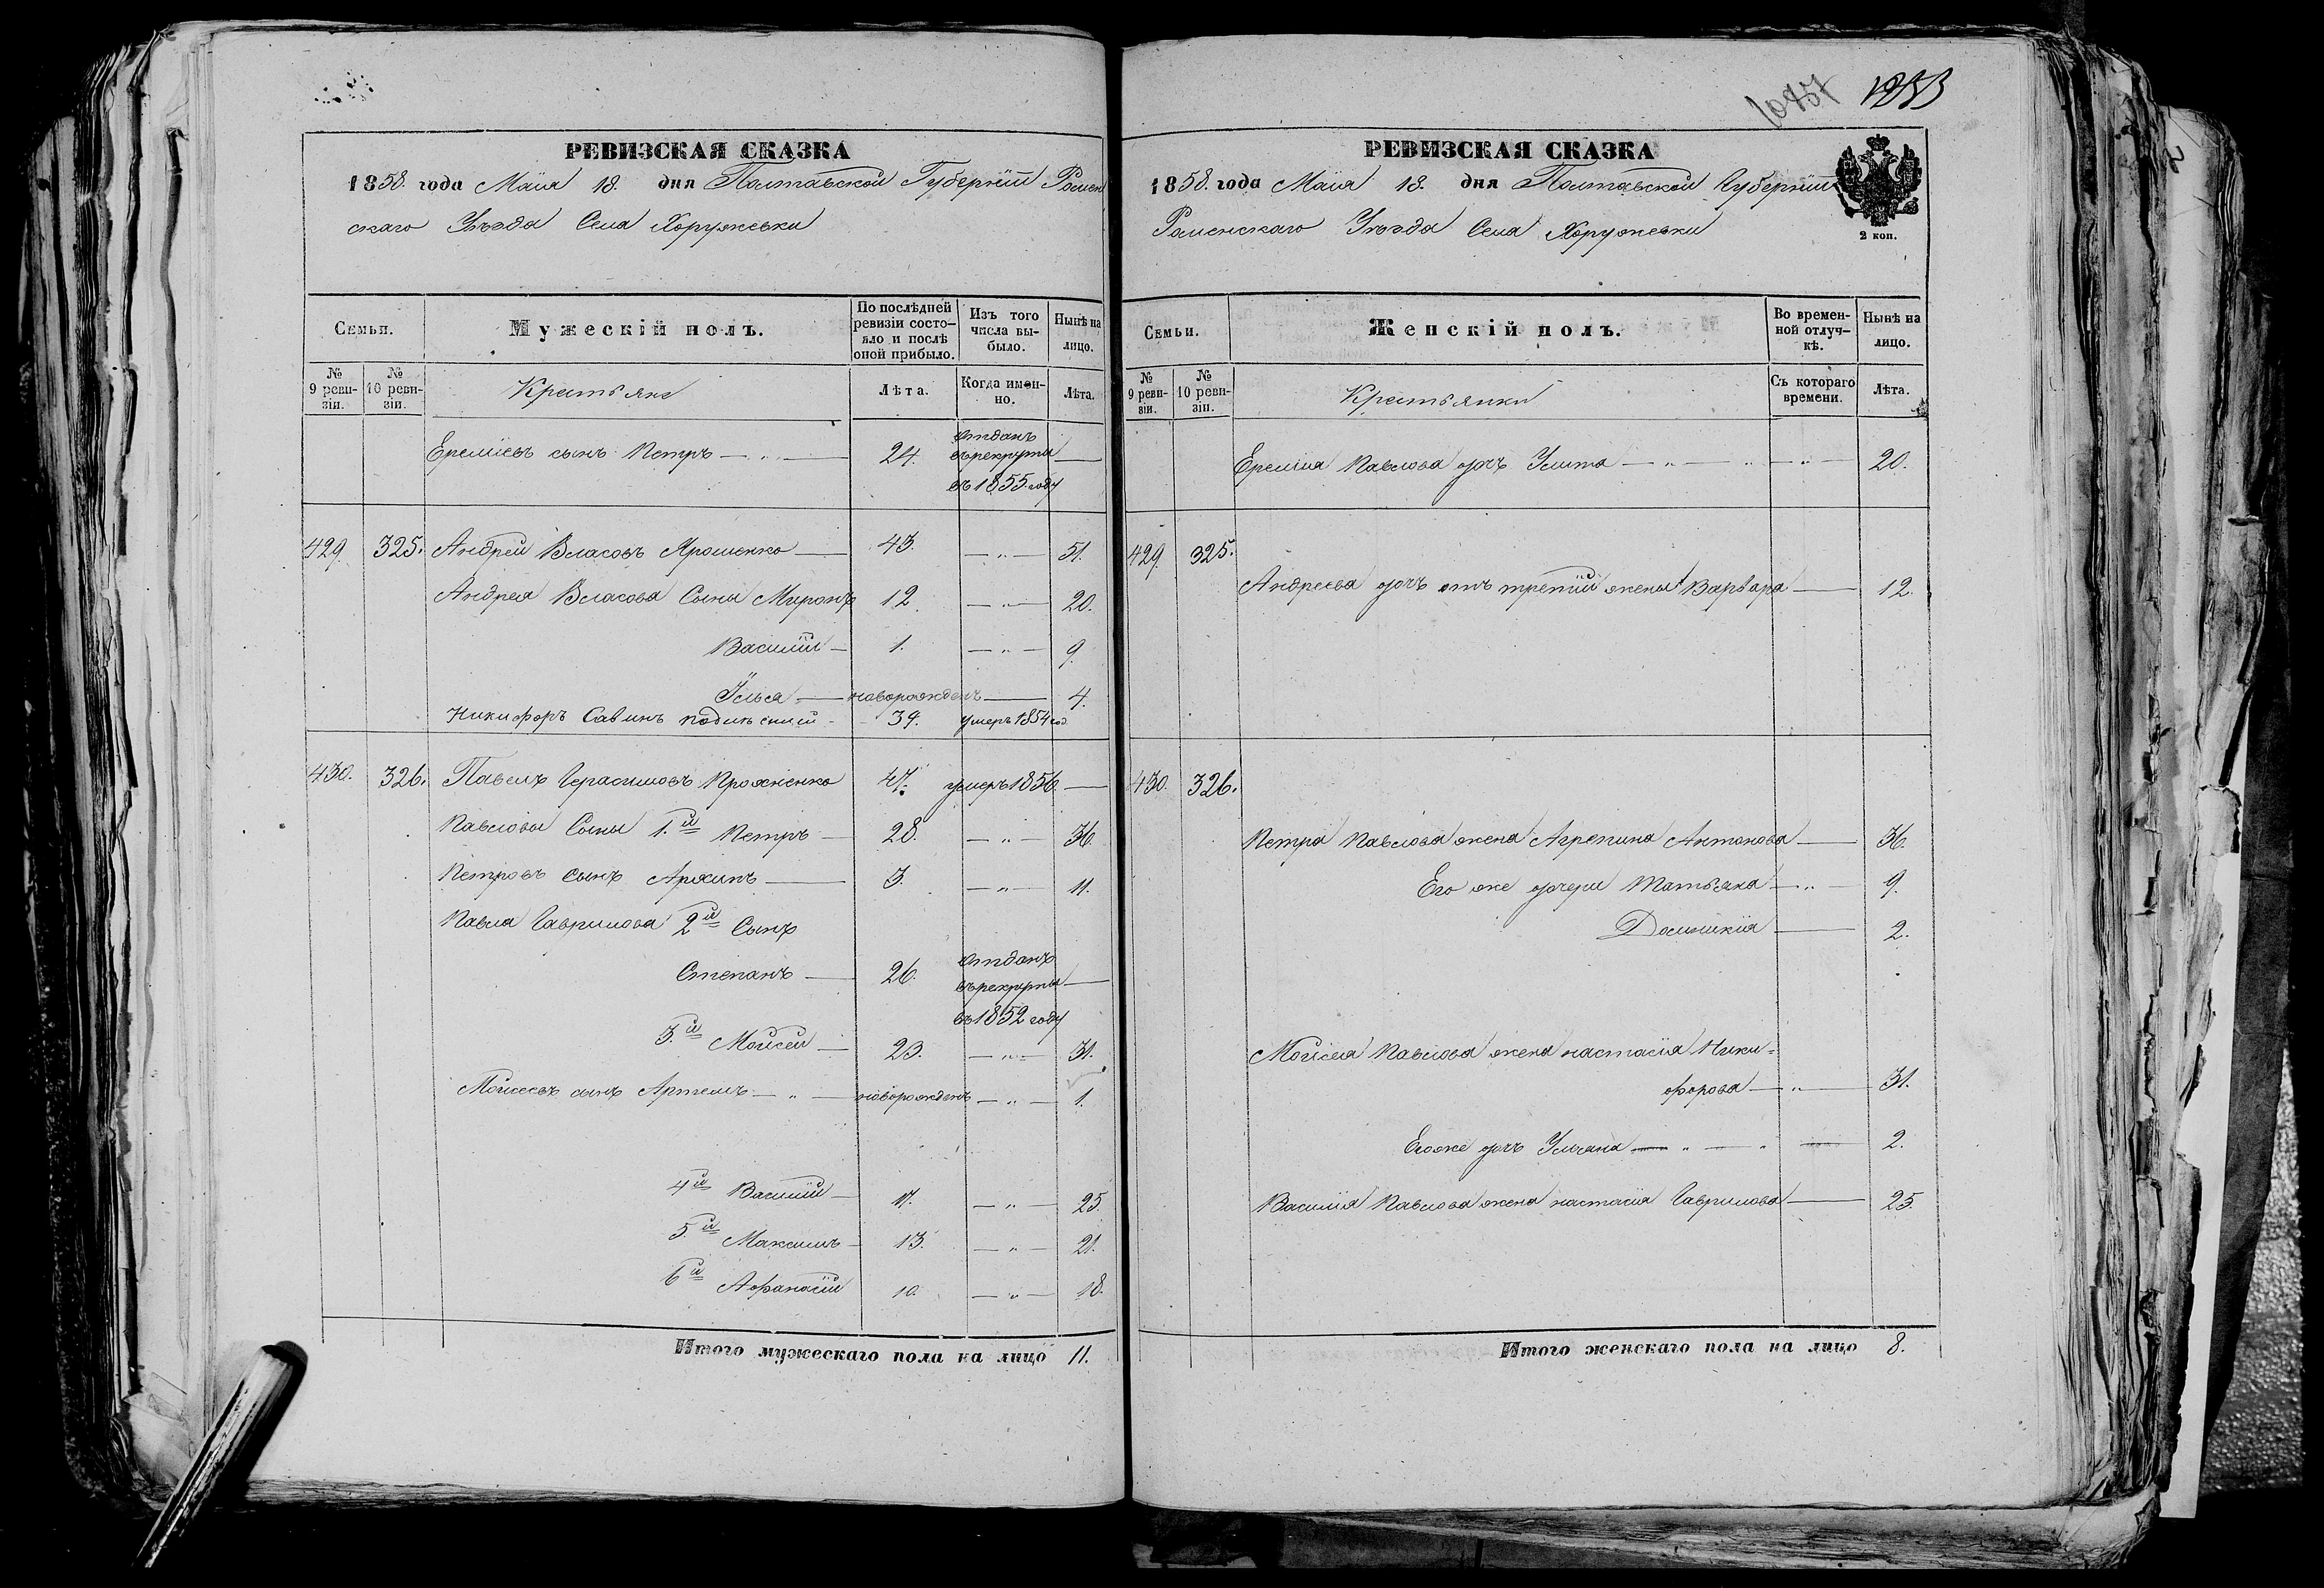 РЕВИЗСКАЯ СКАЗКА
1858. года Маія 18. дня Полтавской Губерніи Ромен
скаго Уѣзда Села Хоружевки
Семьи.
Мужескій полъ.
По послѣдней ревизіи состо-
яло и послѣ оной прибыло.
Изъ того числа вы-
было.
Нынѣ на лицо.
№ 9 реви-
зіи.
№ 10 реви-
зіи.
Крестьяне
Лѣта.
Когда имен-
но.
Лѣта.
Ереміевъ сынъ Петръ — „ — 24. отданъ
въ рекруты —
въ 1855. году
429. 325. Андрей Власовъ Ярошенко — 43. — „ — 51.
Андрея Власова Сыны Миронъ 12. — „ — 20.
Василій — 1. — „ — 9.
Илья — новорожденъ — 4.
Никифоръ Савинъ 34. умеръ 1854 год
430. 326. Павелъ Герасимовъ 47. умеръ 1856. —
Павловы Сыны 1.й Петръ — 28. — „ — 36.
Петровъ сынъ Архипъ — 3. — „ — 11.
Павла Гаврилова 2й Сынъ
Степанъ — 26. отданъ
въ рекруты —
въ 1852 году
3.й Мойсей — 23. — „ — 31.
Мойсеевъ сынъ Артемъ — „ — новорожденъ — „ — 1.
4й Василій — 17. — „ — 25.
5.й Максимъ — 13. — „ — 21.
6й Афанасій 10. — „ — 18.
Итого мужескаго пола на лицо 11.
1033
РЕВИЗСКАЯ СКАЗКА
1858. года Маія 18. дня Полтавской Губерніи
Роменскаго Уѣзда Села Хоружевки
2 коп.
Семьи.
Женскій полъ.
Во времен-
ной отлуч-
кѣ.
Нынѣ на лицо.
№ 9 реви-
зіи.
№ 10 реви-
зіи.
Крестьянки
Съ котораго времени.
Лѣта.
Еремія Павлова дочь Улита — „ — „ — „ — 20.
429. 325.
Андреева дочь отъ третій жены Варвара — 12.
430. 326.
Петра Павлова жена Агрепина Антонова — 36.
Его же дочери Татьяна — „ — 9.
Домникія — 2.
Мойсея Павлова жена настасія Ники=
форова — „ — 31.
Егоже дочь Уліяна — „ — „ — 2.
Василія Павлова жена настасія Гаврилова — 25.
Итого женскаго пола на лицо 8.